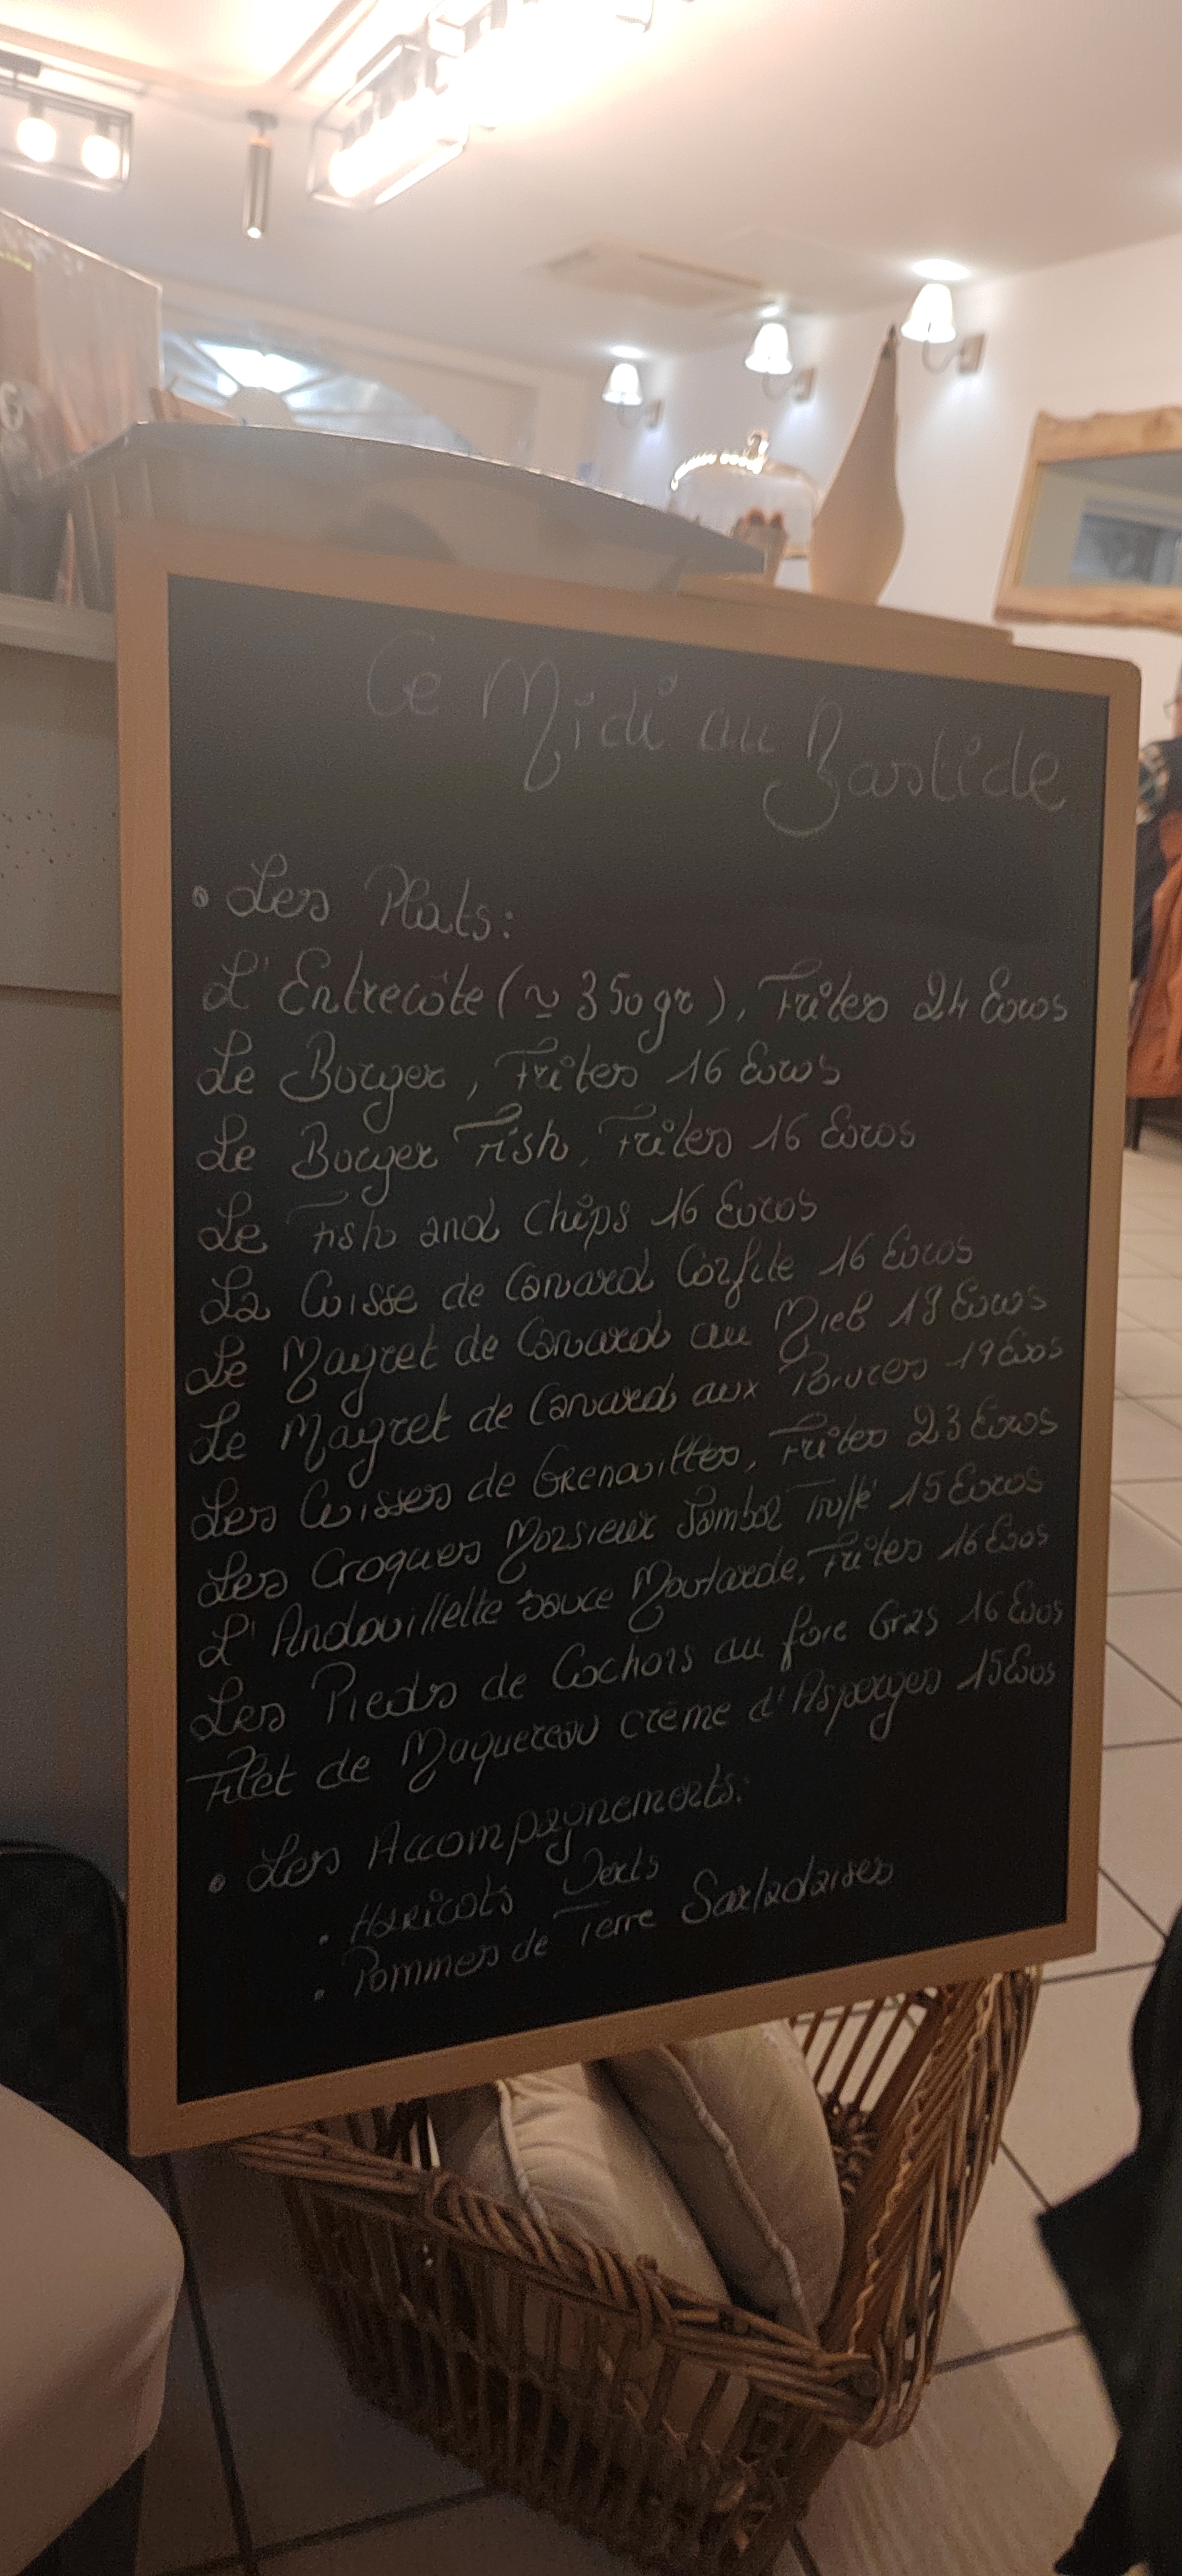 Ce Midi au Bastide
• Les Plats:
L'Entrecôte (≃ 350gr), Frites 24 Euros
Le Burger, Frites 16 Euros
Le Burger Fish, Frites 16 Euros
Le Fish and Chips 16 Euros
La Cuisse de Canard Confite 16 Euros
Le Magret de Canard au Miel 18 Euros
Le Magret de Canard aux Poivres 19 Euros
Les Cuisses de Grenouilles, Frites 23 Euros
Les Croques Monsieur Jambon Truffé 15 Euros
L'Andouillette sauce Moutarde, Frites 16 Euros
Les Pieds de Cochons au foie Gras 16 Euros
Filet de Maquereau crème d'Asperges 15 Euros
• Les Accompagnements:
• Haricots Verts
• Pommes de Terre Sarladaises